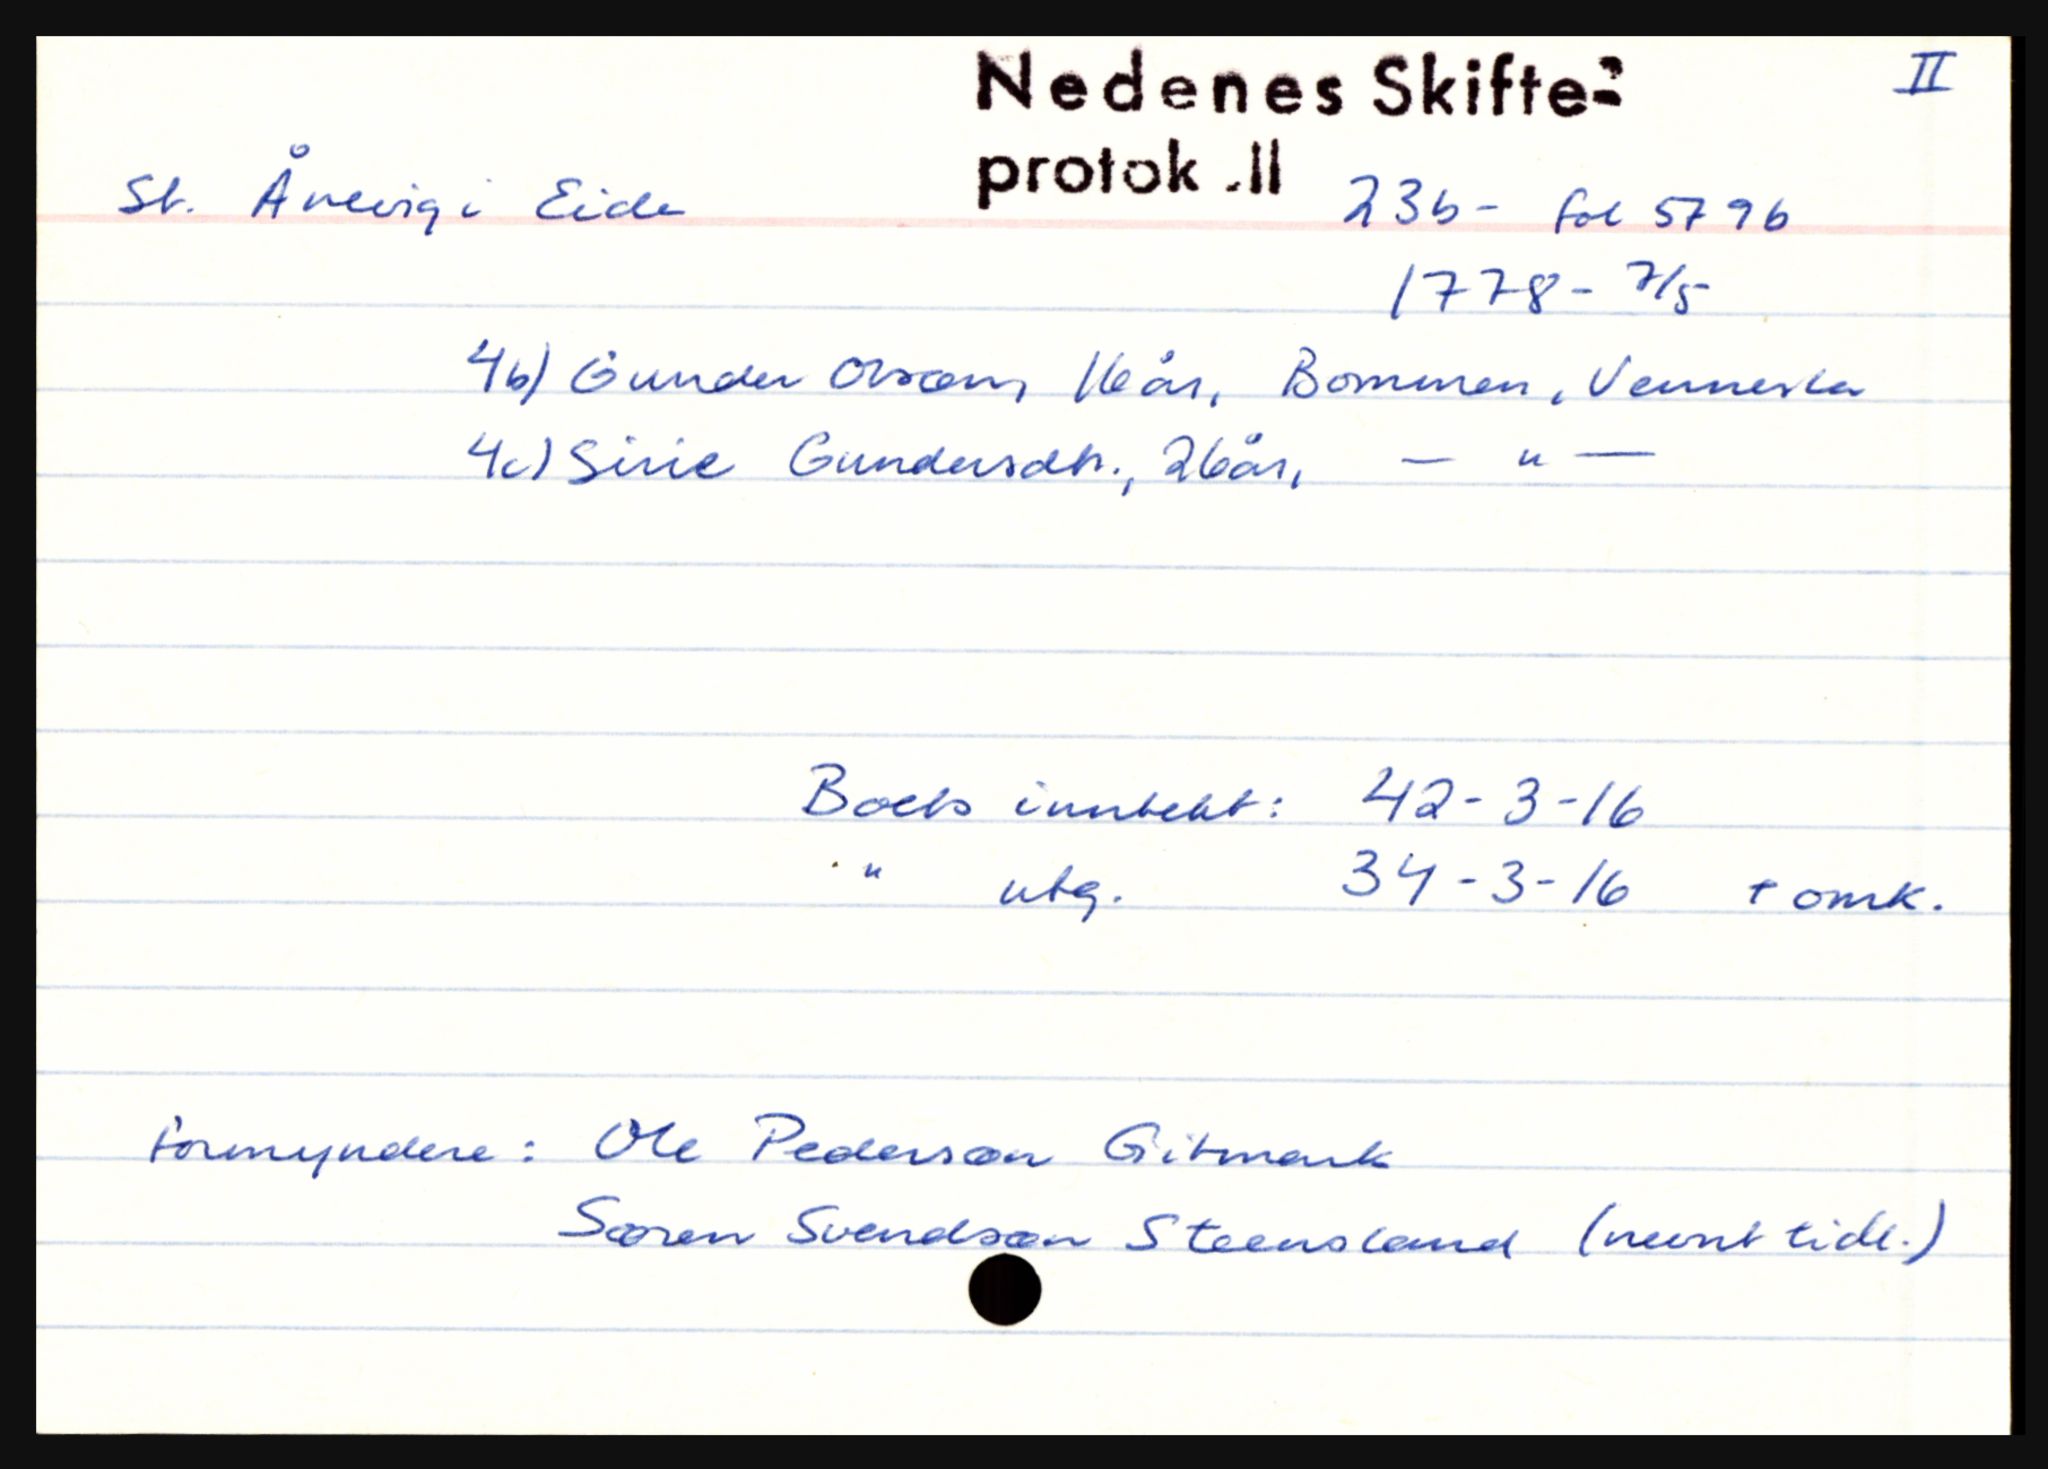 Nedenes Skifte-
II
protok.ll
St. Årevig i Eide
23b - fol 579b
1778 - 7/5
4b) Gunder Olsen, 16 år, Bommen, Vennesla
4c) Sirie Gundersdtr., 26 år, — " —
Boets inntekt: 42-3-16
" utg. 34-3-16 + omk.
Formyndere: Ole Pedersen Gitmark
Søren Svendsen Steensland (nevnt tidl.)